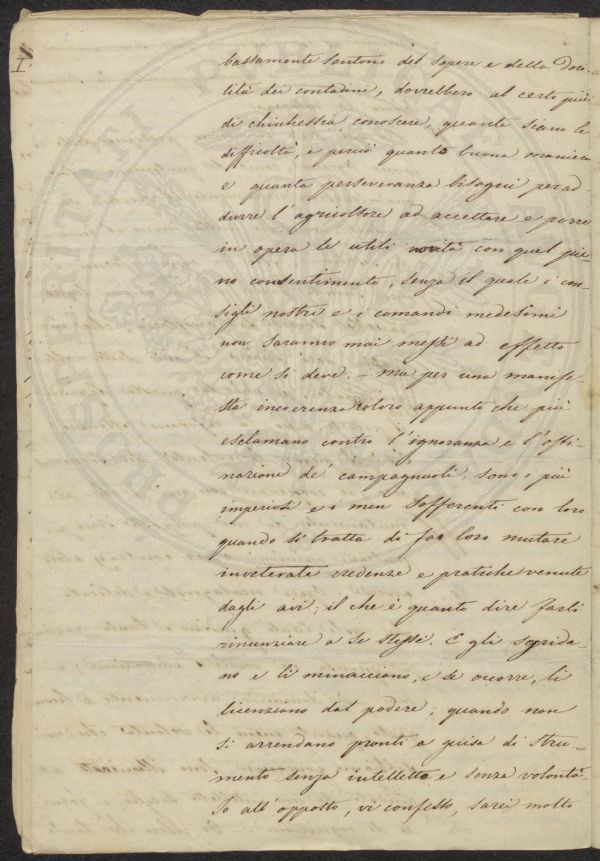 bassamente sentono del sapere e della doci-
lità dei contadini, dovrebbero al certo più
di chichessia conoscere, quante siano le
difficoltà, e perciò quanto buona maniera
e quanta perseveranza bisogni per ad-
durre l'agricoltore ad accettare e porre
in opera le utili novità con quel pie-
no consentimento, senza il quale i con-
sigli nostri e i comandi medesimi
non saranno mai messi ad effetto
come si deve. - Ma per una manife-
sta incoerenza coloro appunto che più
esclamano contro l'ignoranza e l'osti-
nazione de' campagnuoli, sono i più
imperiosi e i men sofferenti con loro
quando si tratta di far loro mutare
inveterate credenze e pratiche venute
dagli avi; il che è quanto dire farli
rinunziare a se stessi. E gli sgrida-
no e li minacciono, e se occorre, li
licenziono dal podere, quando non
si arrendano pronti a guisa di stru-
mento senza intelletto e senza volontà.
Io all'opposto, vi confesso, sarei molto
PROSPERITATI